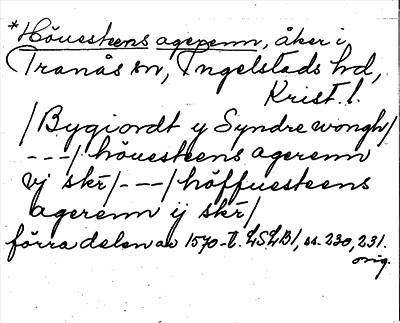 *Höuesteens agerenn, åker i
Tranås sn, Ingelstads hd,
Krist. l.
/Bygiordt y Syndre wongh/
---/ höuesteens agerenn
vj skr/---/höffuesteens
agerenn ij skr/
förra delen av 1570-t. LSLB1, ss. 230, 231.
orig.